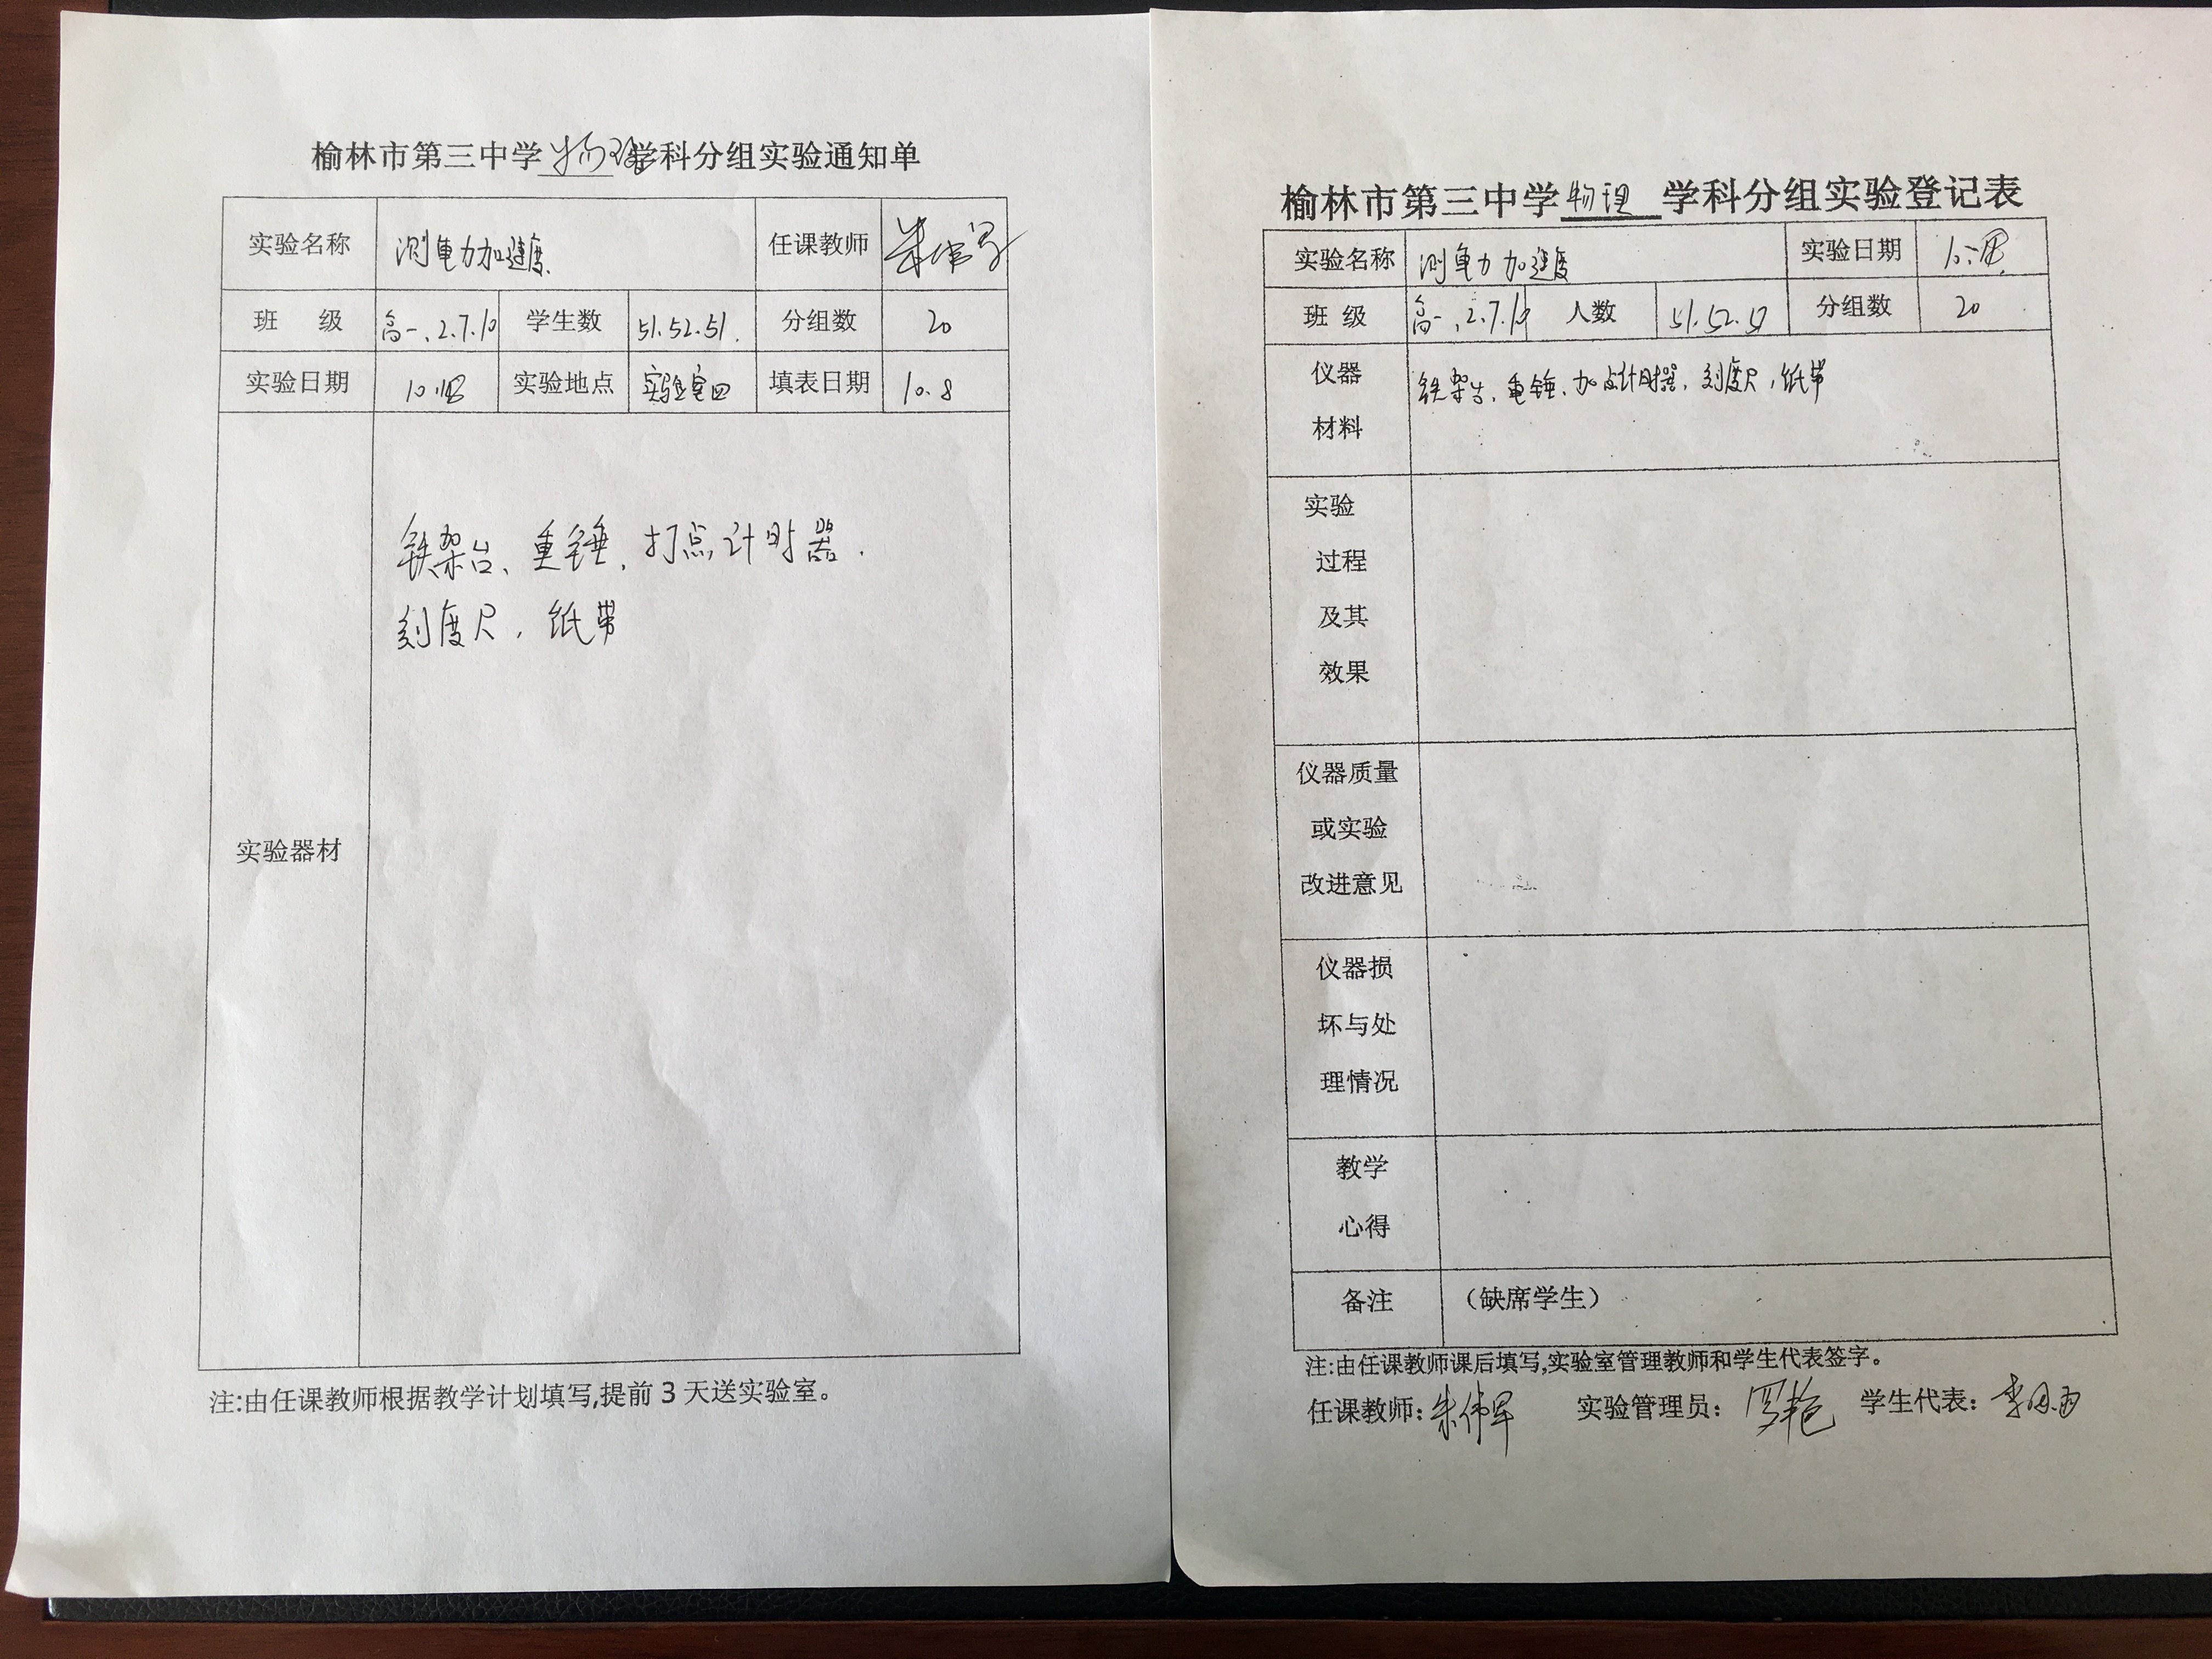 榆林市第三中学物理学科分组实验通知单
实验名称 测重力加速度 任课教师 朱伟军
班 级 高一、2.7.10 学生数 51.52.51. 分组数 20
实验日期 实验地点 实验室四 填表日期 10.8
实验器材
铁架台、重锤、打点计时器.
刻度尺，纸带
注:由任课教师根据教学计划填写,提前 3 天送实验室。
榆林市第三中学 物理 学科分组实验登记表
实验名称 测重力加速度 实验日期
班 级 高一、2.7.10 人数 51.52.51 分组数 20
仪器
材料
铁架台、重锤、打点计时器、刻度尺，纸带
实验
过程
及其
效果
仪器质量
或实验
改进意见
仪器损
坏与处
理情况
教学
心得
备注 （缺席学生）
注:由任课教师课后填写,实验室管理教师和学生代表签字。
任课教师: 朱伟军 实验管理员: 罗艳 学生代表: 李